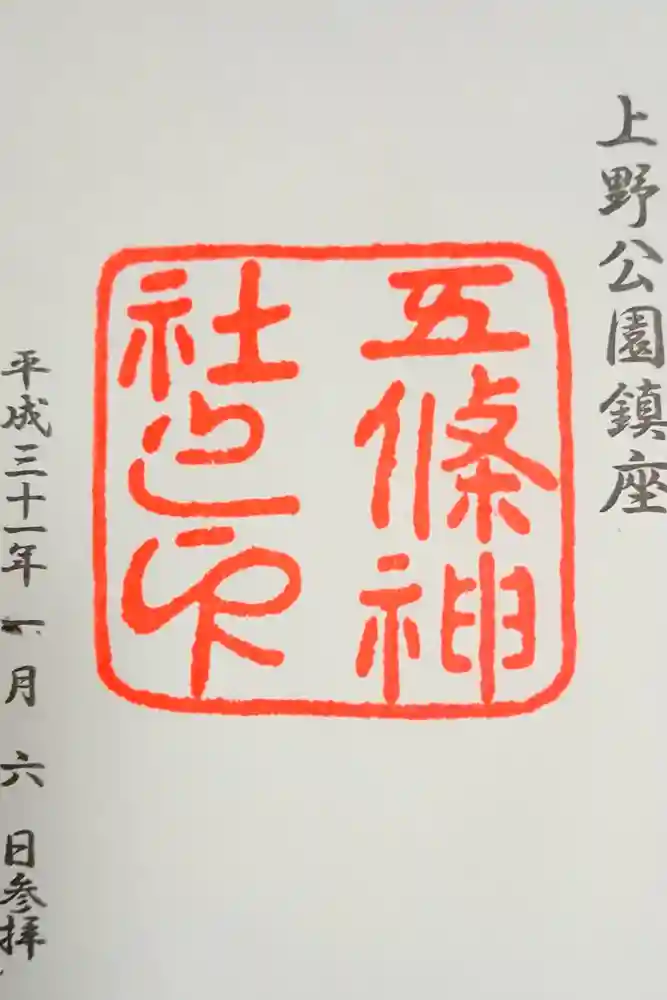 上野公園鎮座
五條神
社之印
平成三十一年一月六日参拝